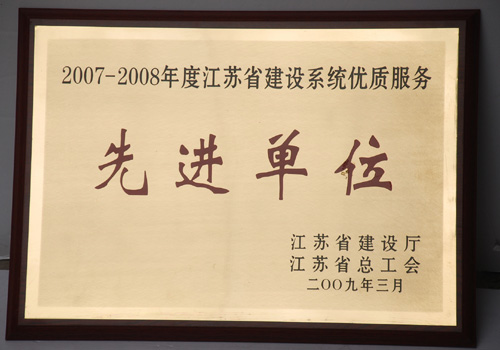 2007-2008年度江苏省建设系统优质服务
先进单位
江苏省建设厅
江苏省总工会
二〇〇九年三月